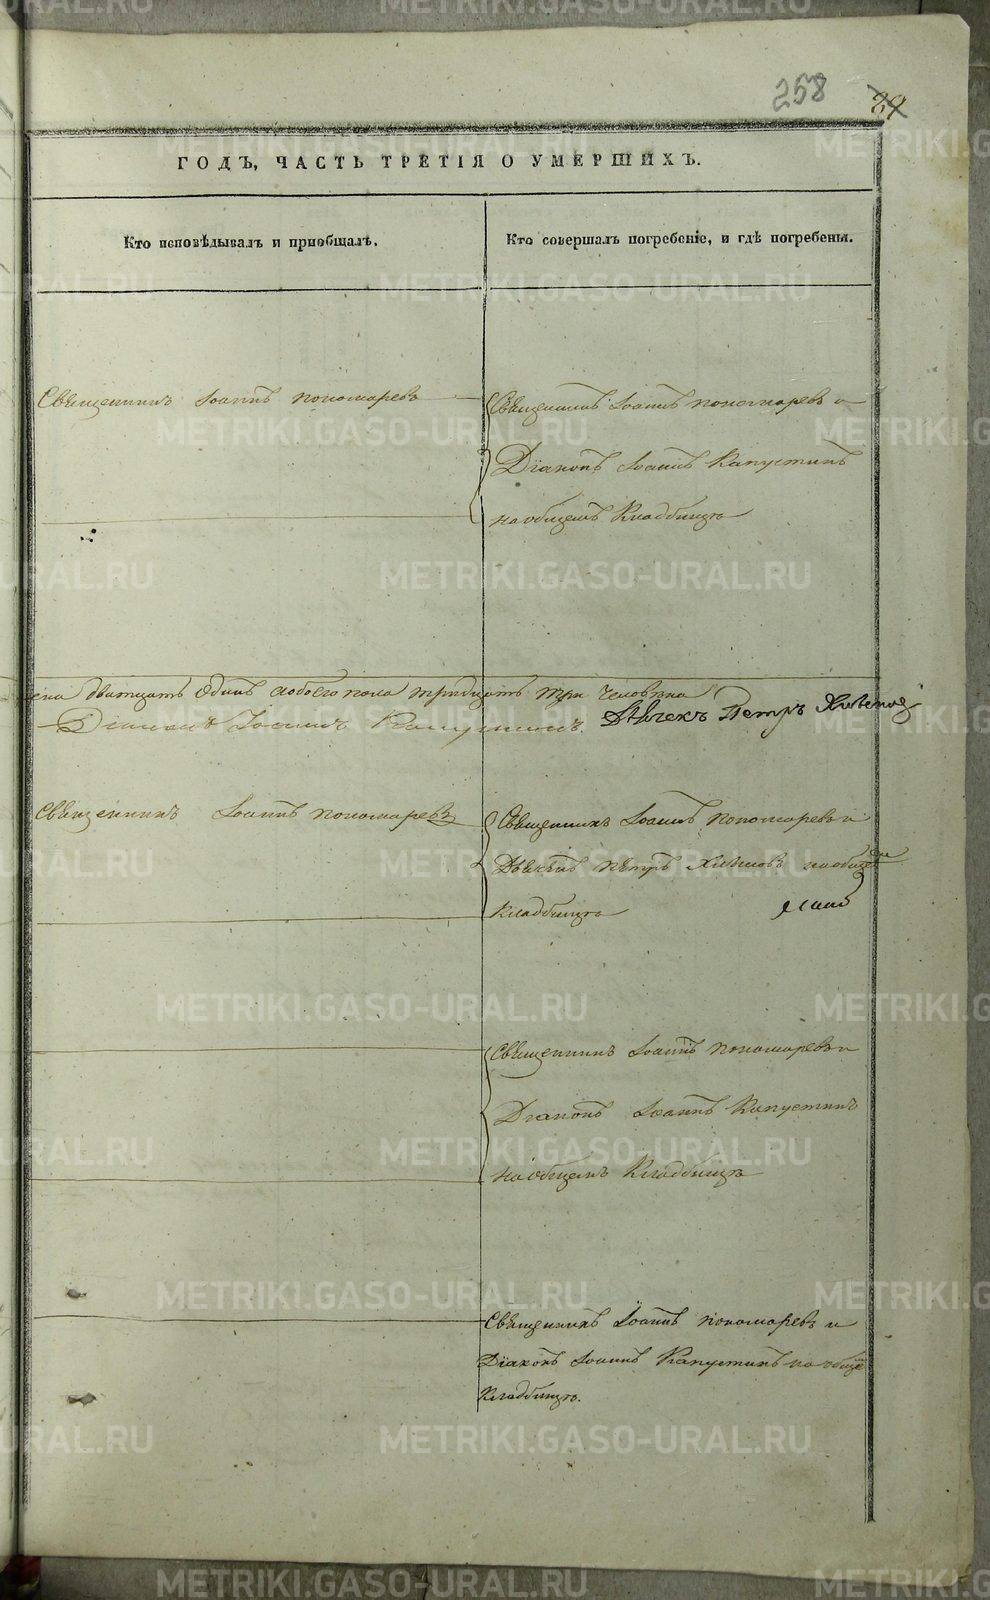 258 29
ГОДЪ, ЧАСТЬ ТРЕТІЯ О УМЕРШИХЪ.
Кто исповѣдывалъ и пріобщалъ.
Кто совершалъ погребеніе, и гдѣ погребены.
Священникъ Іоаннъ Пономаревъ
Священникъ Іоаннъ Пономаревъ и
Діаконъ Іоаннъ Капустинъ
на общемъ Кладбищѣ
дватцать Одинъ а обоего пола тридцать три человѣка
Діаконъ Іоаннъ Капустинъ. Дьячекъ Петръ
Священникъ Іоаннъ Пономаревъ
Священникъ Іоаннъ Пономаревъ и
Дьячекъ Петръ на общемъ
Кладбищѣ
Священникъ Іоаннъ Пономаревъ и
Діаконъ Іоаннъ Капустинъ
на общемъ Кладбищѣ
Священникъ Іоаннъ Пономаревъ и
Діаконъ Іоаннъ Капустинъ на общемъ
Кладбищѣ.
METRIKI.GASO-URAL.RU